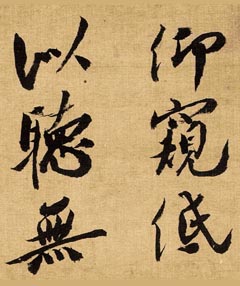 仰窺低
以聴無